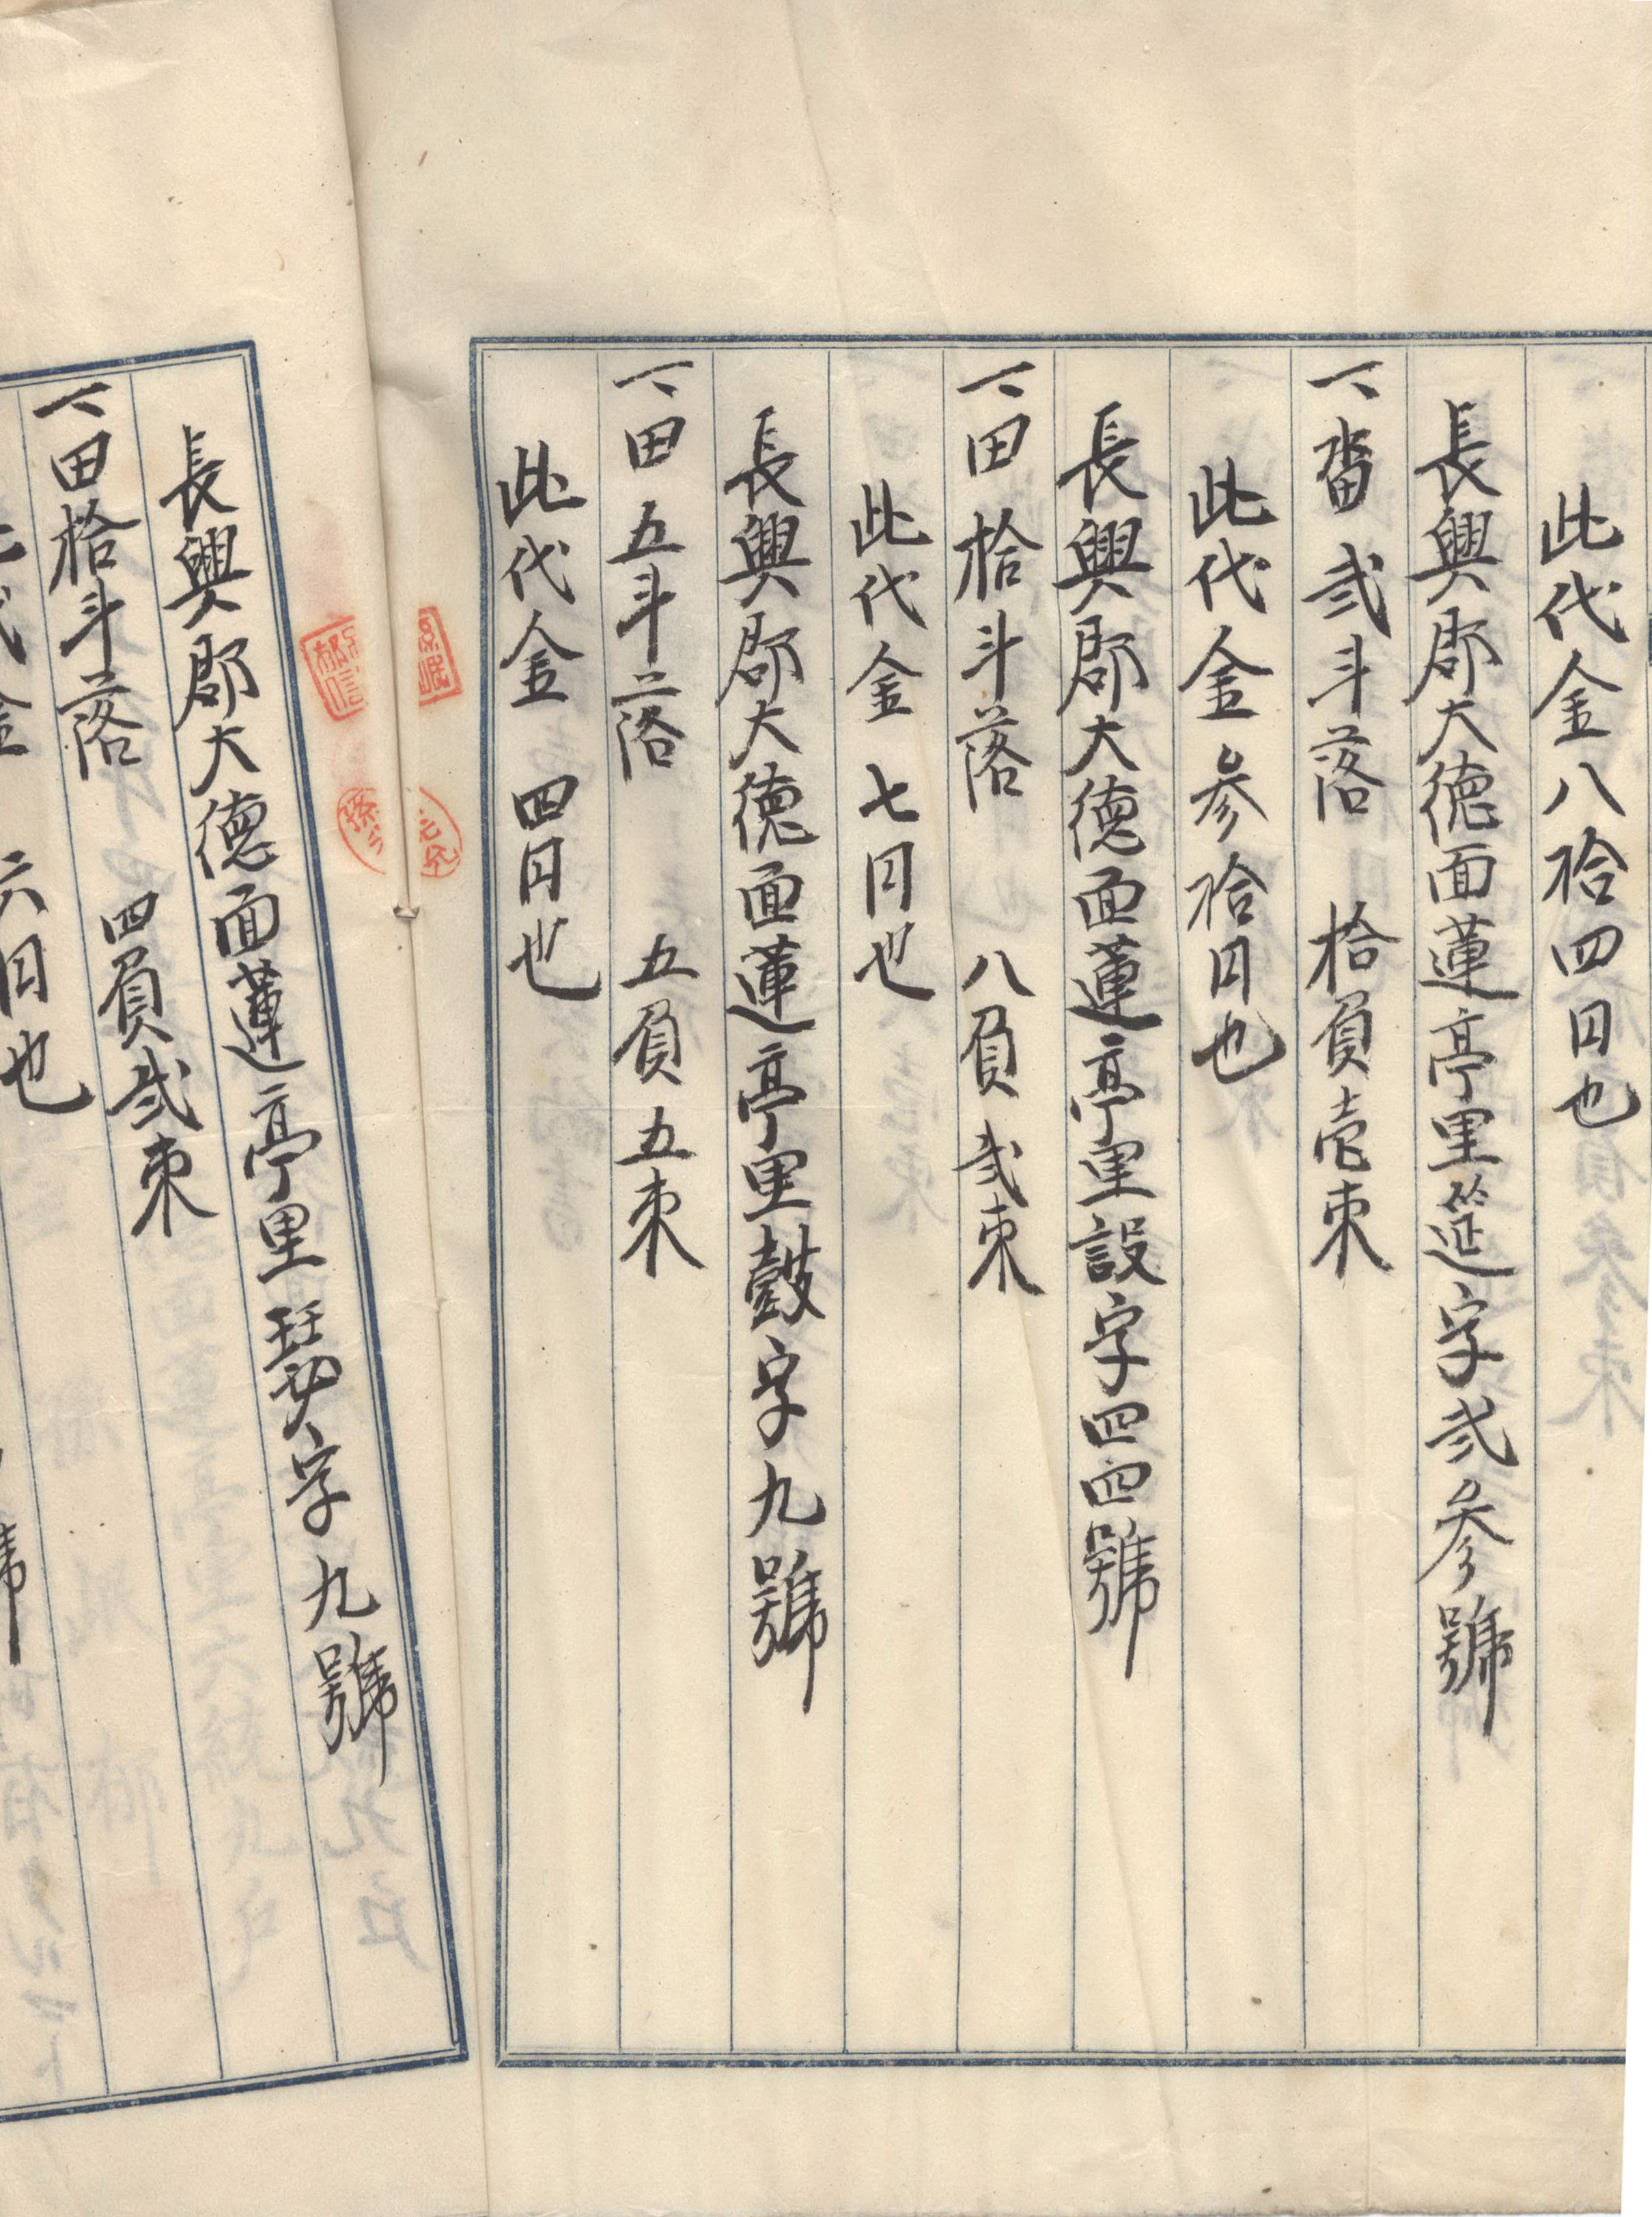 此代金八拾四円也
長興郡大德面蓮亭里筵字弐参號
一 畓弐斗落 拾負壱束
此代金参拾円也
長興郡大德面蓮亭里設字四四號
一 田拾斗落 八負弐束
此代金七円也
長興郡大德面蓮亭里鼓字九號
一 田五斗落 五負五束
此代金四円也
長興郡大德面蓮亭里瑟字九號
一 田拾斗落 四負弐束
此代金六円也
號